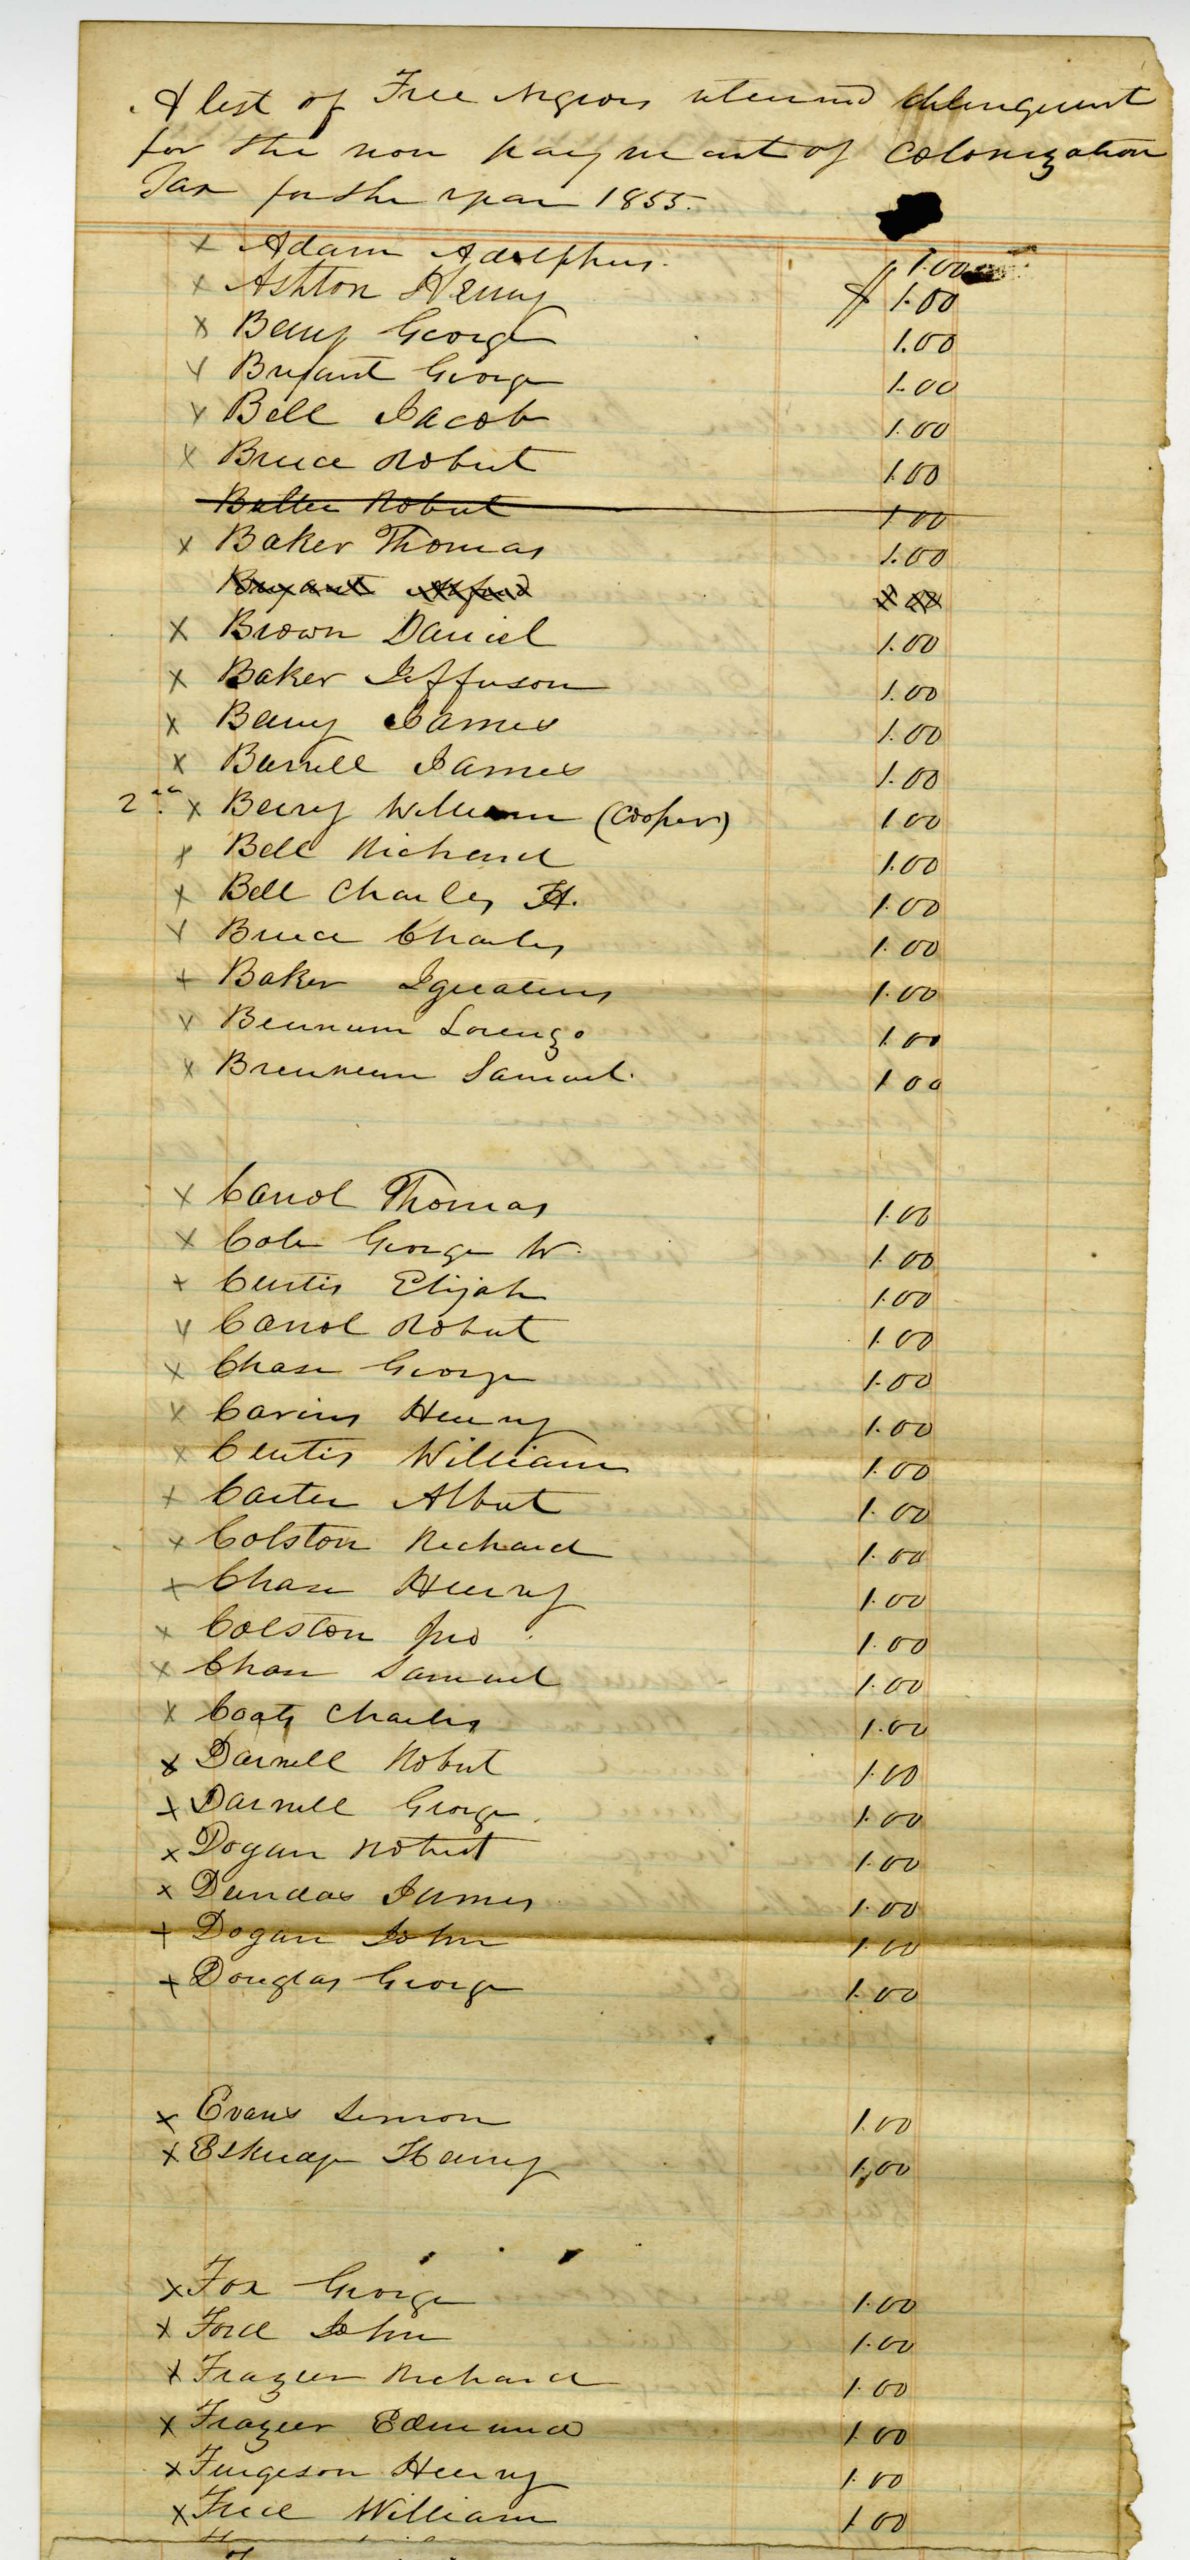 A list of Free Negroes returned delinquent
for the non payment of Colonization
Tax for the year 1855.
x Adam Adolphus. 1.00
x Ashton Henny $ 1.00
x Berry George 1.00
x Bryant George 1.00
x Bell Jacob 1.00
x Bruce Robert 1.00
Butler Robert 1 00
x Baker Thomas 1.00
Bryant
x Brown Daniel 1.00
x Baker Jefferson 1.00
x Barry James 1.00
x Burrell James 1.00
2 x Berry William (Cooper) 1 00
x Bell Richard 1.00
x Bell Charles H. 1.00
x Bruce Charles 1.00
x Baker Ignatius 1.00
x Lorenzo 1 00
x Samuel. 1 00
x Carrol Thomas 1.00
x Cole George W. 1.00
x Curtis Elijah 1.00
x Carrol Robert 1.00
x Chase George 1.00
x Henry 1.00
x Curtis William 1.00
x Carter Albert 1.00
x Colston Richard 1.00
x Chase Henry 1.00
x Colston Jno 1.00
x Chase Samuel 1.00
x Coats Charles 1.00
x Darnell Robert 1.00
x Darnell George 1.00
x Dogan Robert 1.00
x Dundas James 1.00
x Dogan John 1.00
x Douglas George 1.00
x Evans Simon 1.00
x Eskridge Harry 1.00
x Fox George 1.00
x Ford John 1.00
x Frazier Richard 1.00
x Frazier Edmund 1.00
x Furgeson Henry 1.00
x William 1 00